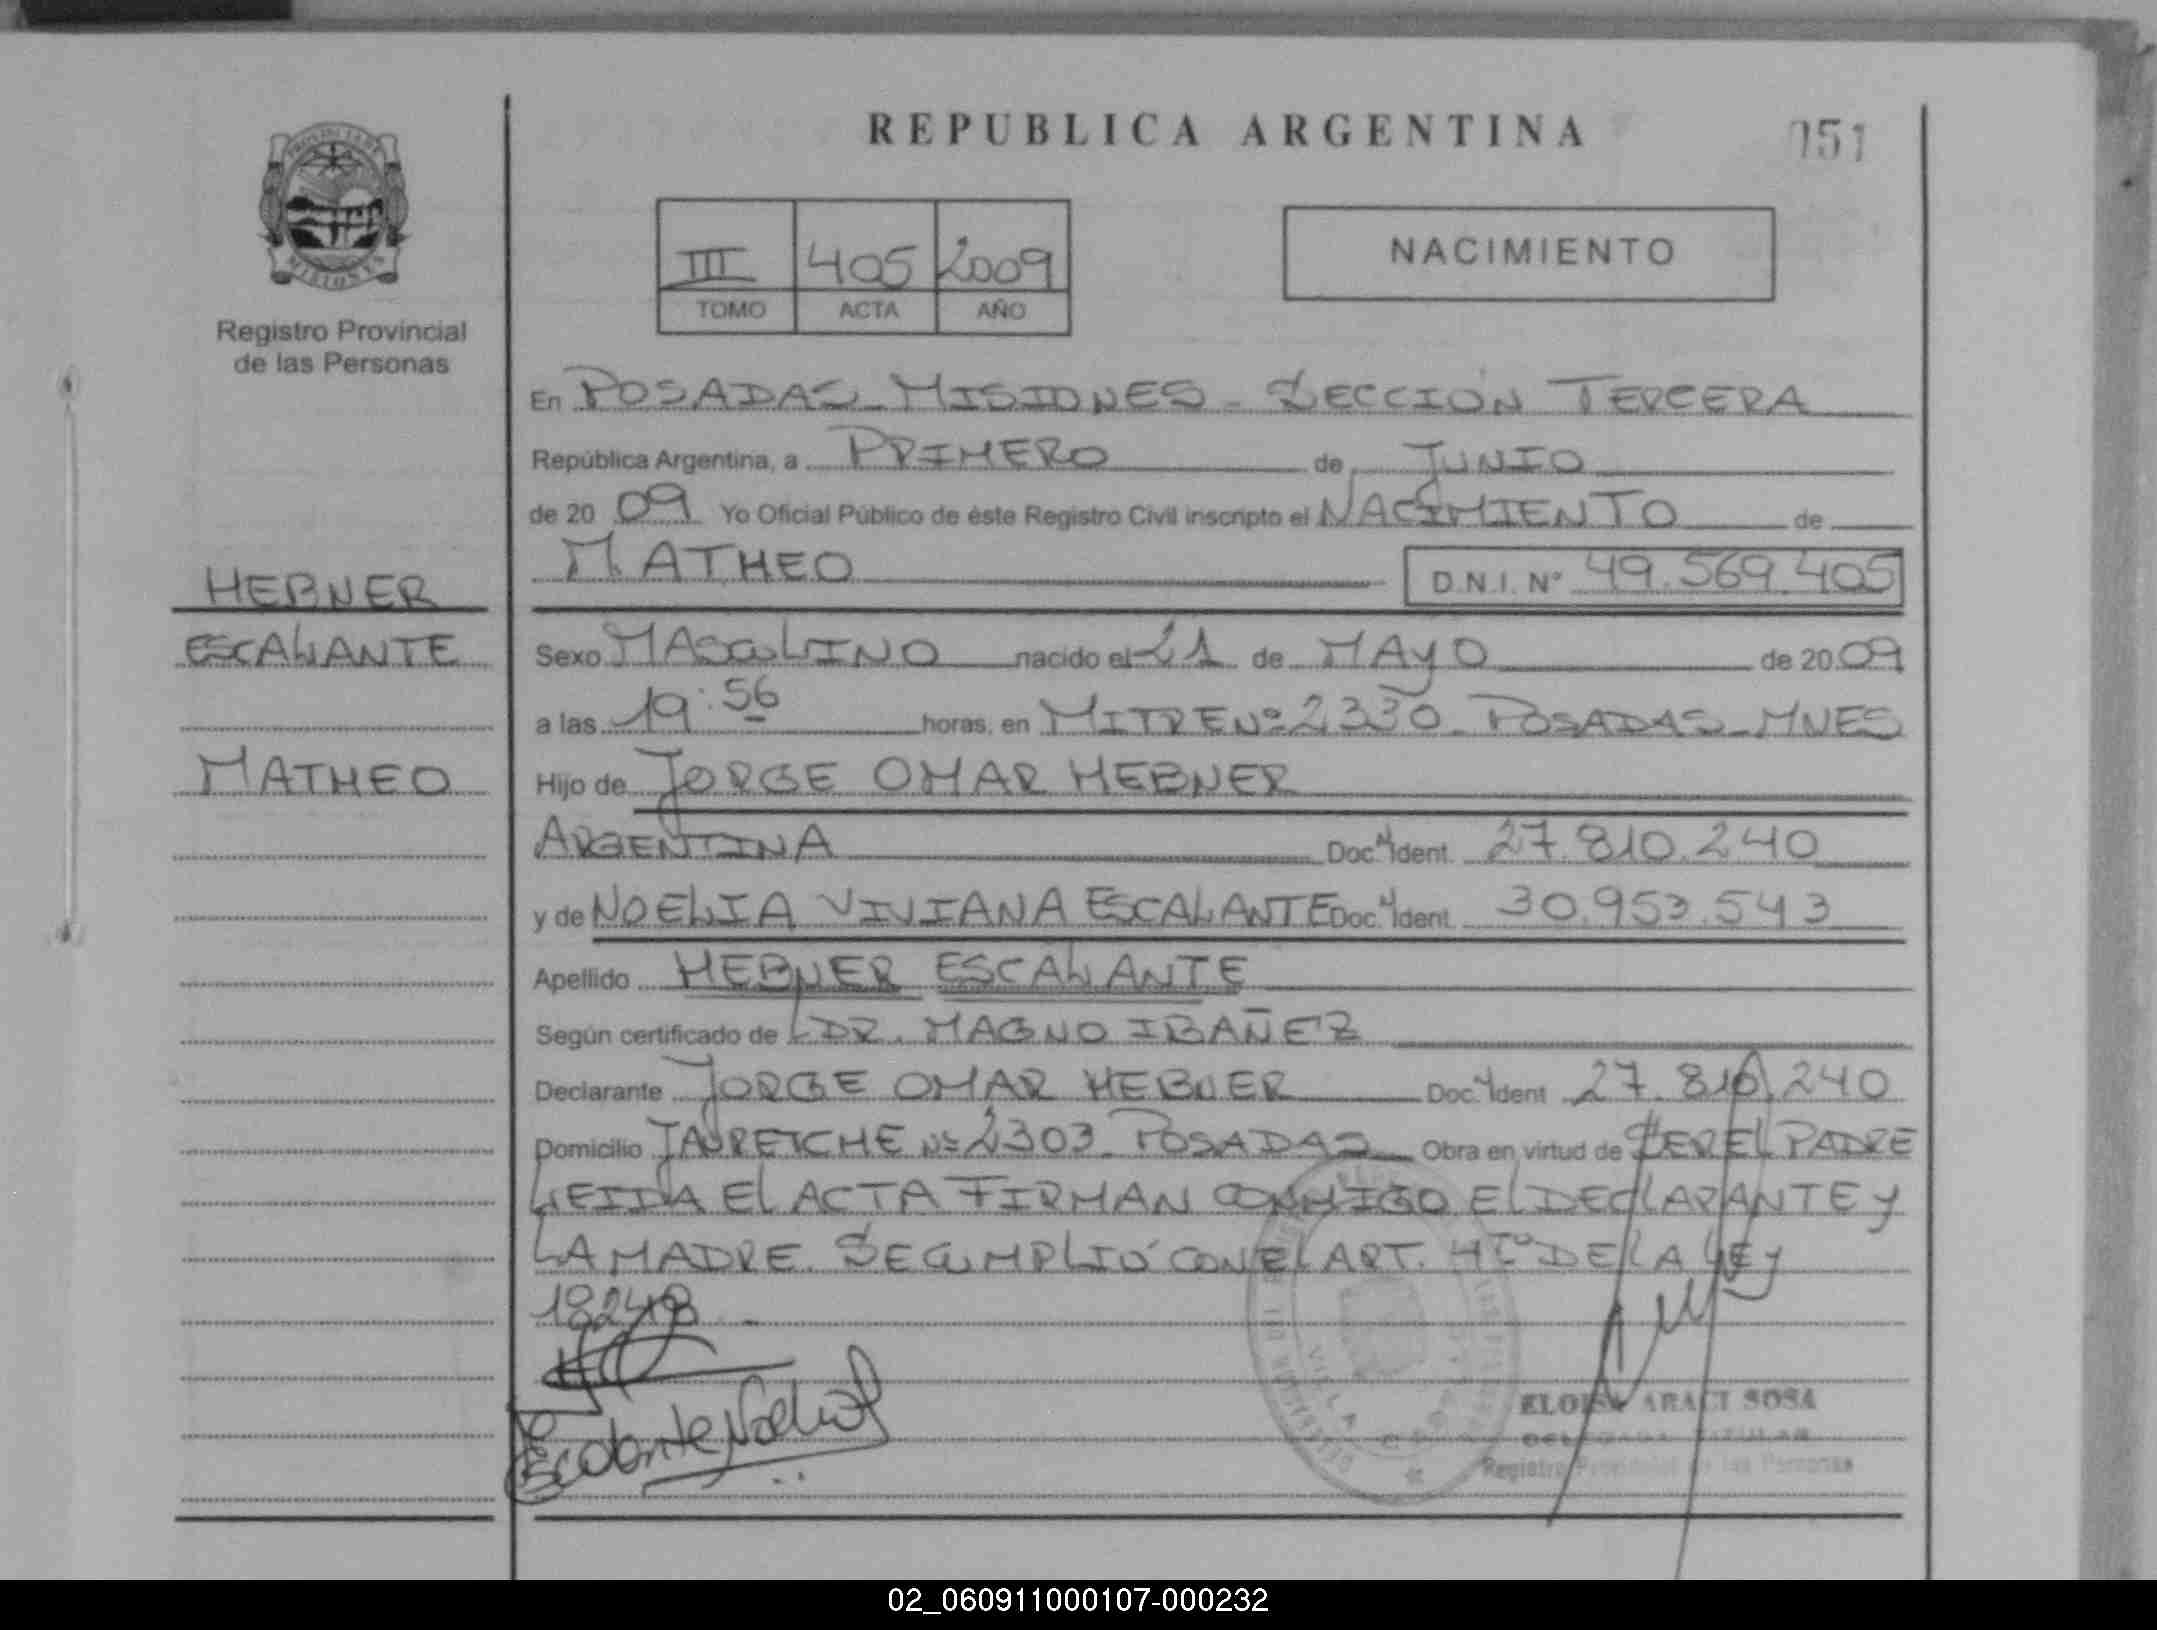 REPUBLICA ARGENTINA
051
Registro Provincial
de las Personas
III 405 2009
TOMO ACTA AÑO
NACIMIENTO
En POSADAS - MISIONES - SECCIÓN TERCERA
República Argentina, a PRIMERO de JUNIO
de 2009 Yo Oficial Público de éste Registro Civil inscripto el NACIMIENTO de
MATHEO D.N.I. Nº 49.569.405
HEBNER
ESCALANTE
MATHEO
Sexo MASCULINO nacido el 21 de MAYO de 2009
a las 19:56 horas, en MITRE Nº 2330 - POSADAS - MNES
Hijo de JORGE OMAR HEBNER
ARGENTINA Doc. Ident. 27.810.240
y de NOELIA VIVIANA ESCALANTE Doc. Ident. 30.953.543
Apellido HEBNER ESCALANTE
Según certificado de DR. MAGNO IBAÑEZ
Declarante JORGE OMAR HEBNER Doc. Ident 27.810.240
Domicilio JAURETCHE Nº 2303 - POSADAS Obra en virtud de SER EL PADRE
LEIDA EL ACTA FIRMAN CONMIGO EL DECLARANTE Y
LA MADRE. SE CUMPLIÓ CON EL ART. DE LA LEY
18248. -
Escalante Noelia
ELOISA ARACI SOSA
DELEGADA TITULAR
Registro Provincial de las Personas
02_060911000107-000232